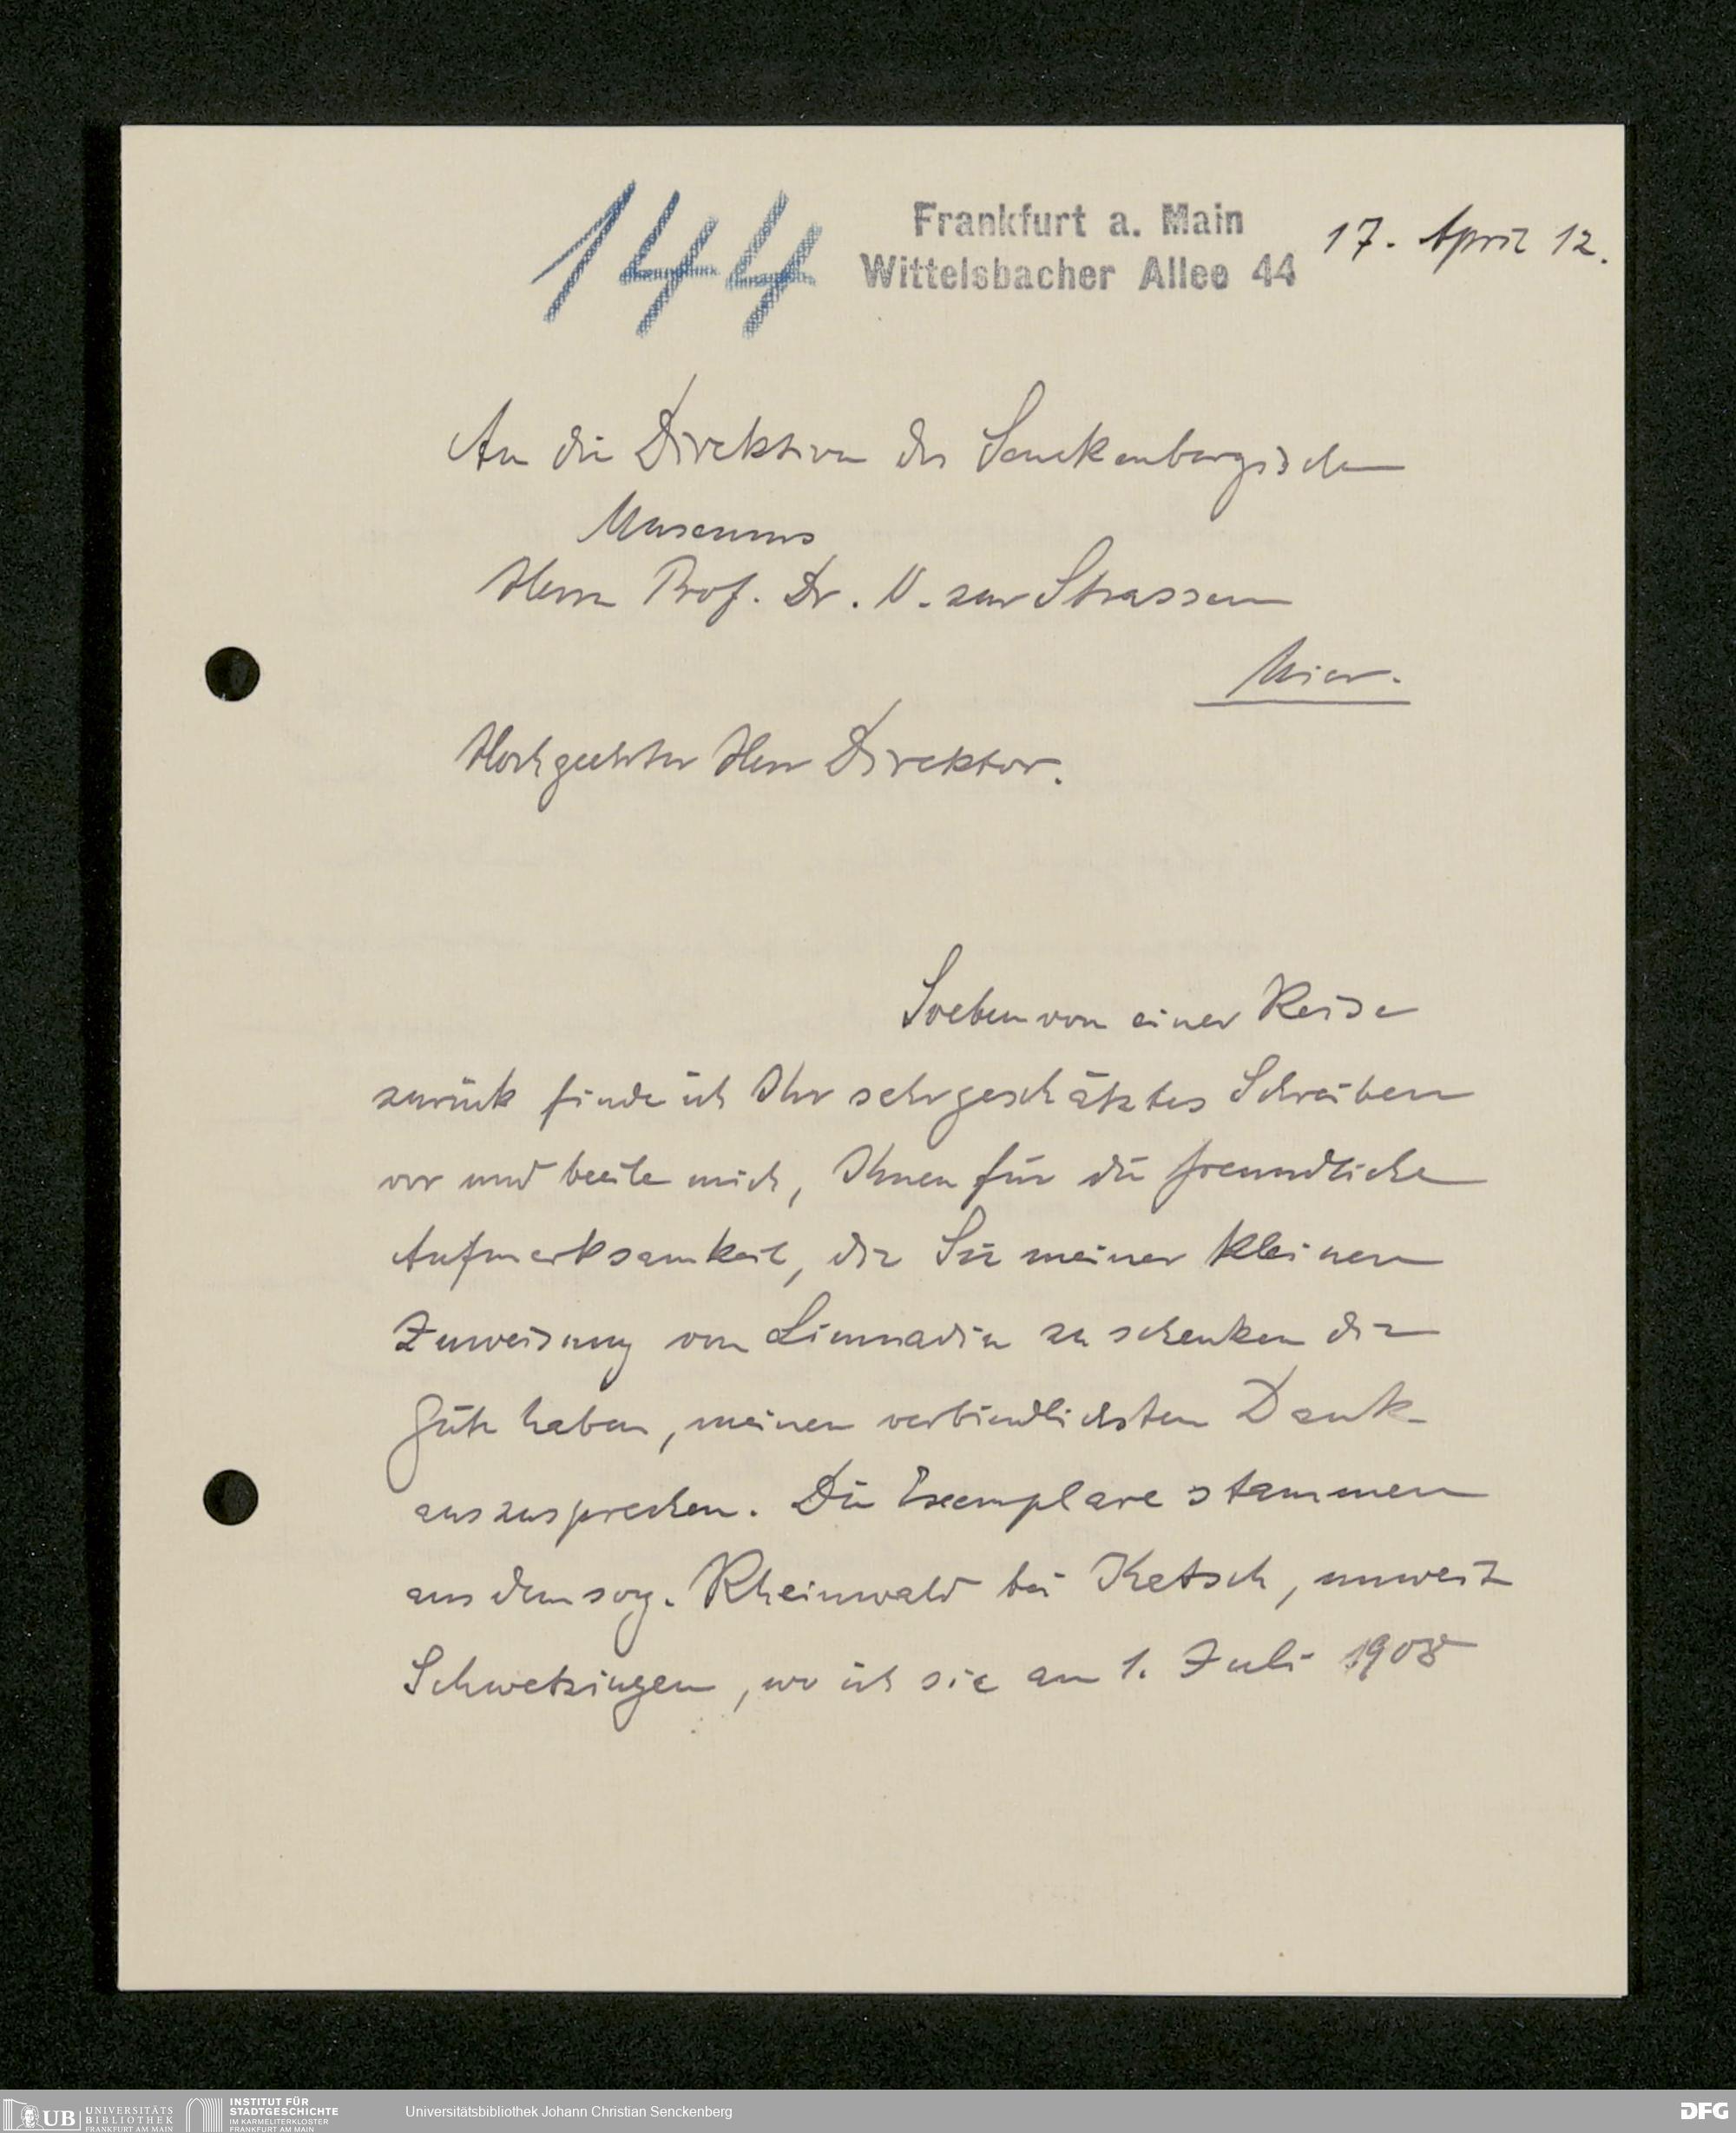 144
Frankfurt a. Main
Wittelsbacher Allee 44
17. April 12.
An die Direktion des Senckenbergischen
Museums
Herrn Prof. Dr. zur Strassen
Hier.
Hochgeehrter Herr Direktor.
Soeben von einer Reise
zurück finde ich Ihr sehr geschätztes Schreiben
vor und beeile mich, Ihnen für die freundliche
Aufmerksamkeit, die Sie meiner kleinen
Zuweisung von Limnadia zu schenken die
Güte haben, meinen verbindlichsten Dank
auszusprechen. Die Exemplare stammen
aus dem sog. Rheinwald bei Ketsch, unweit
Schwetzingen, wo ich sie am 1. Juli 1908
UB
UNIVERSITÄTS
BIBLIOTHEK
FRANKFURT AM MAIN
INSTITUT FÜR
STADTGESCHICHTE
IM KARMELITERKLOSTER
FRANKFURT AM MAIN
Universitätsbibliothek Johann Christian Senckenberg
DFG